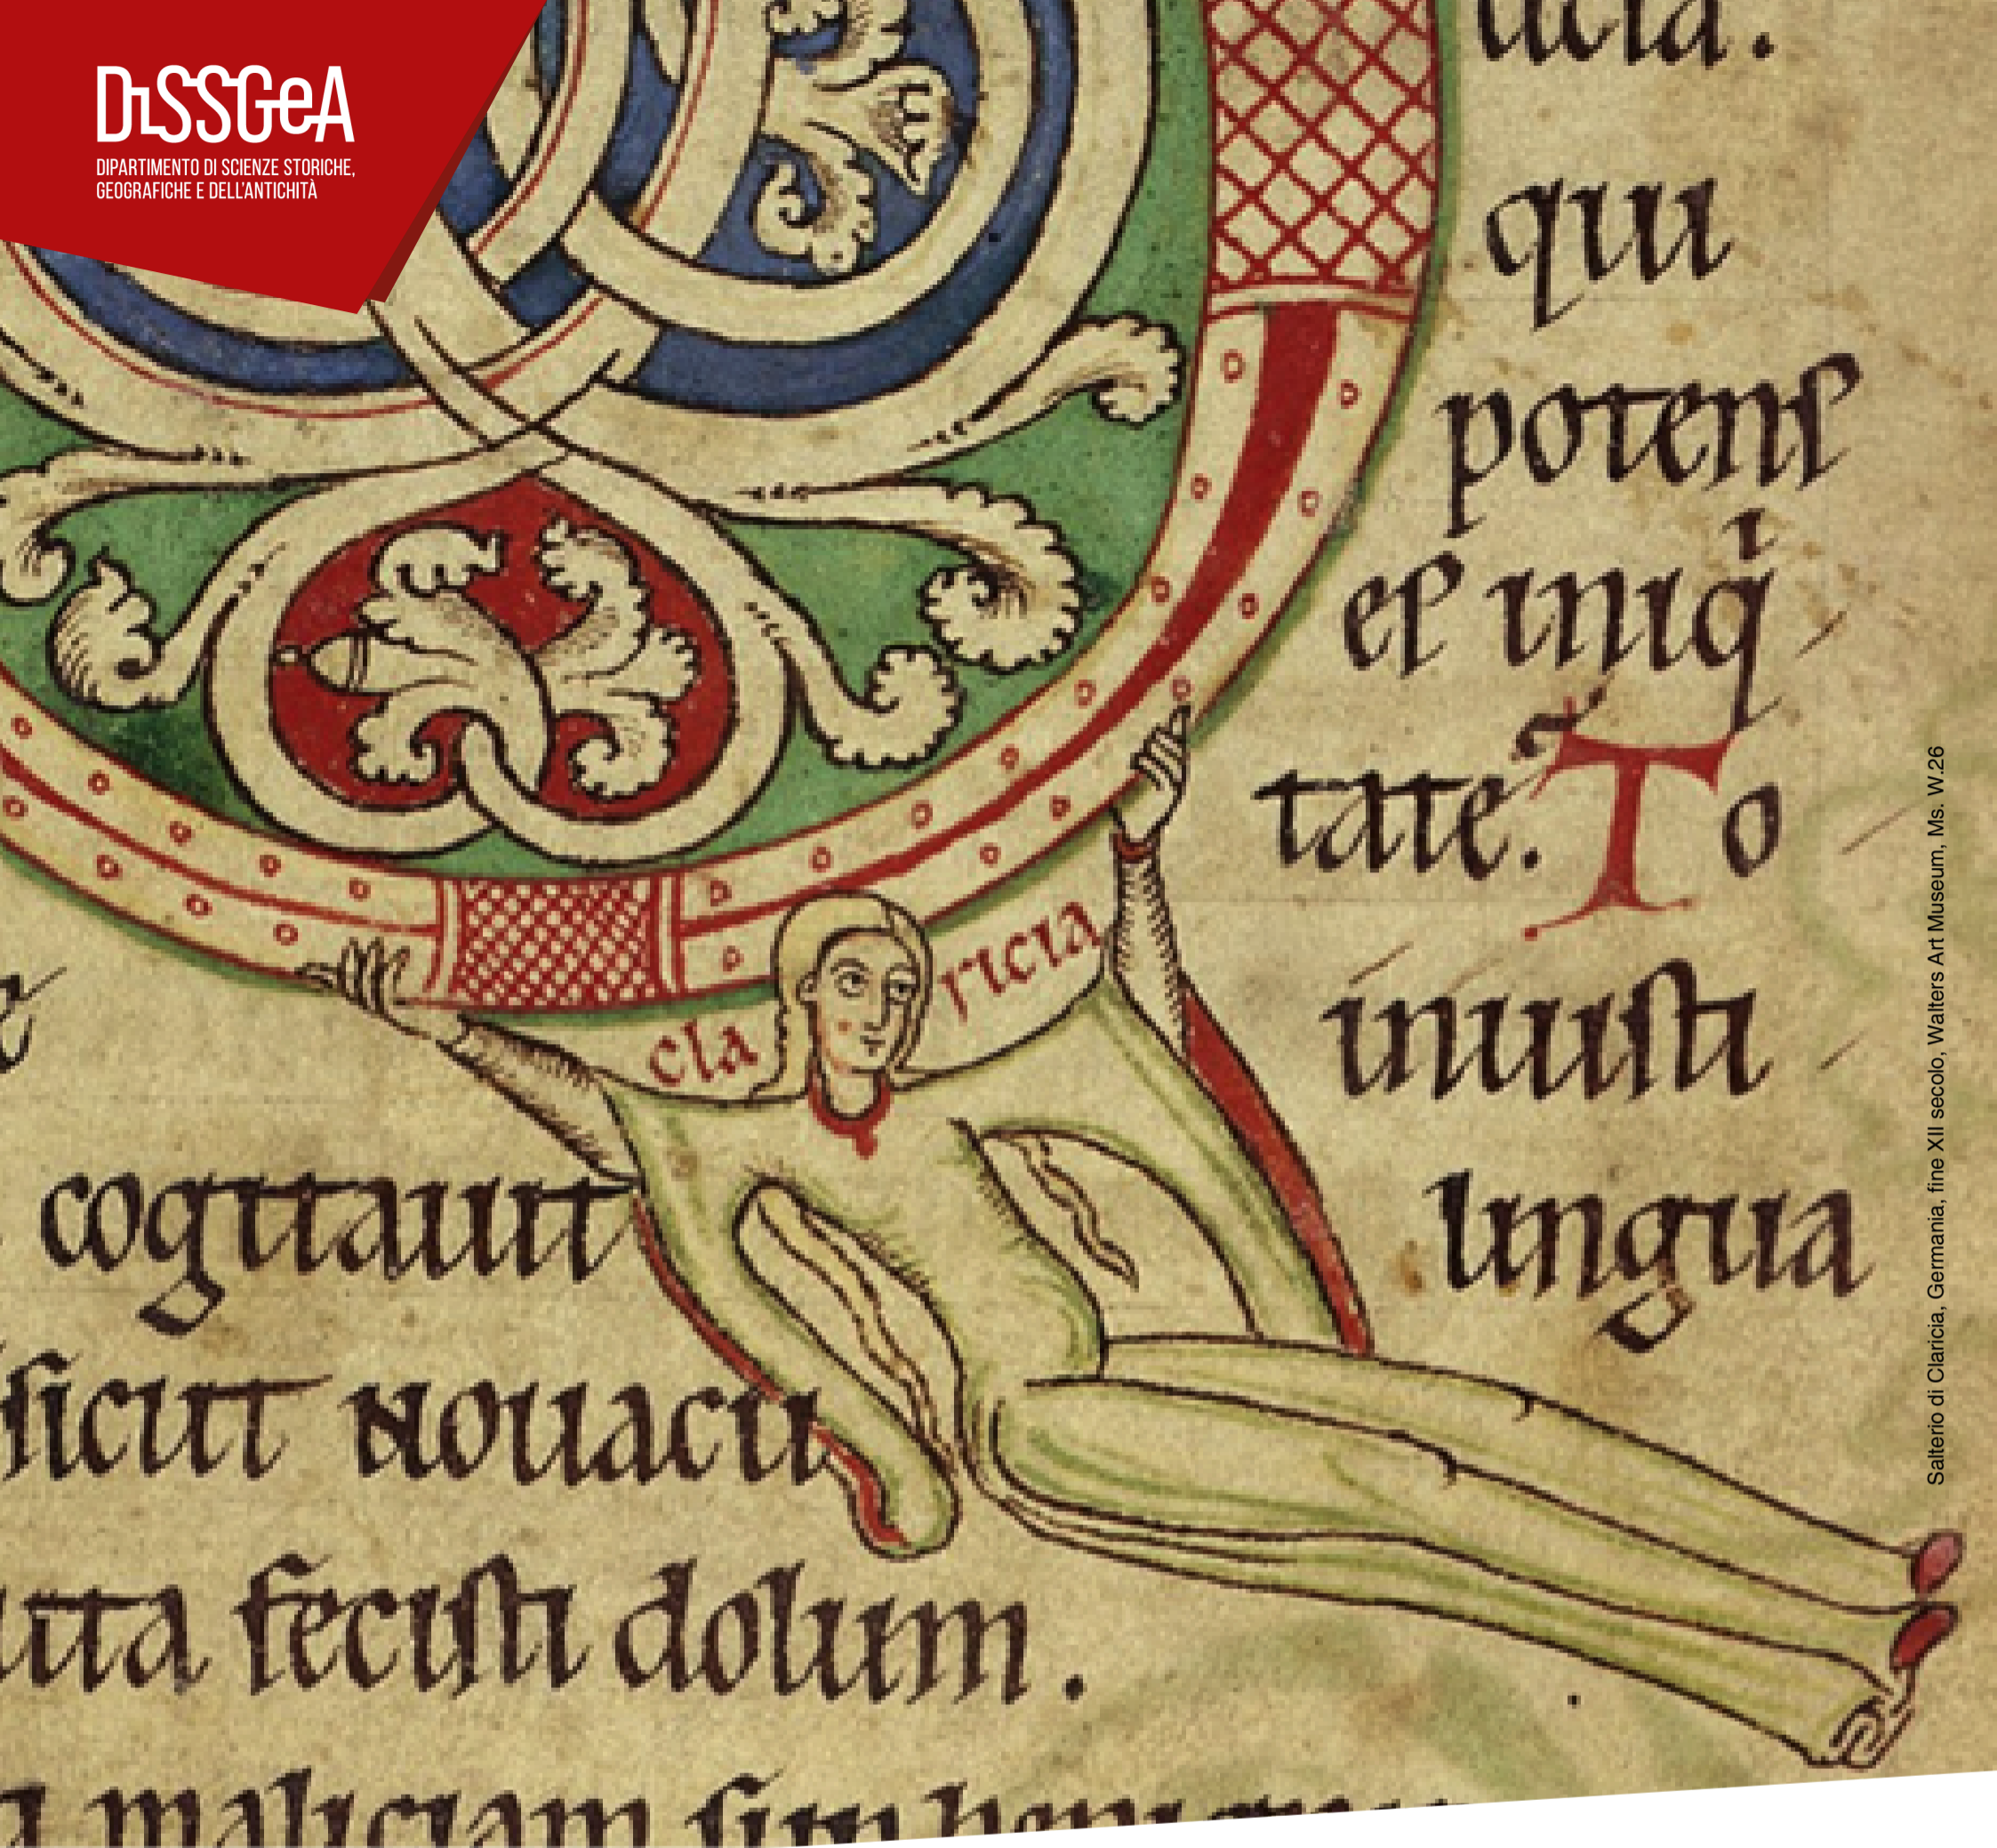 DiSSGeA
DIPARTIMENTO DI SCIENZE STORICHE,
GEOGRAFICHE E DELL'ANTICHITÀ
qui
potens
es iniq
tate. To
cla ricia
iniusti
cogitauit
lingua
sicut nouacu
fecisti dolum.
maliciam sup
Salterio di Claricia, Germania, fine XII secolo, Walters Art Museum, Ms. W.26